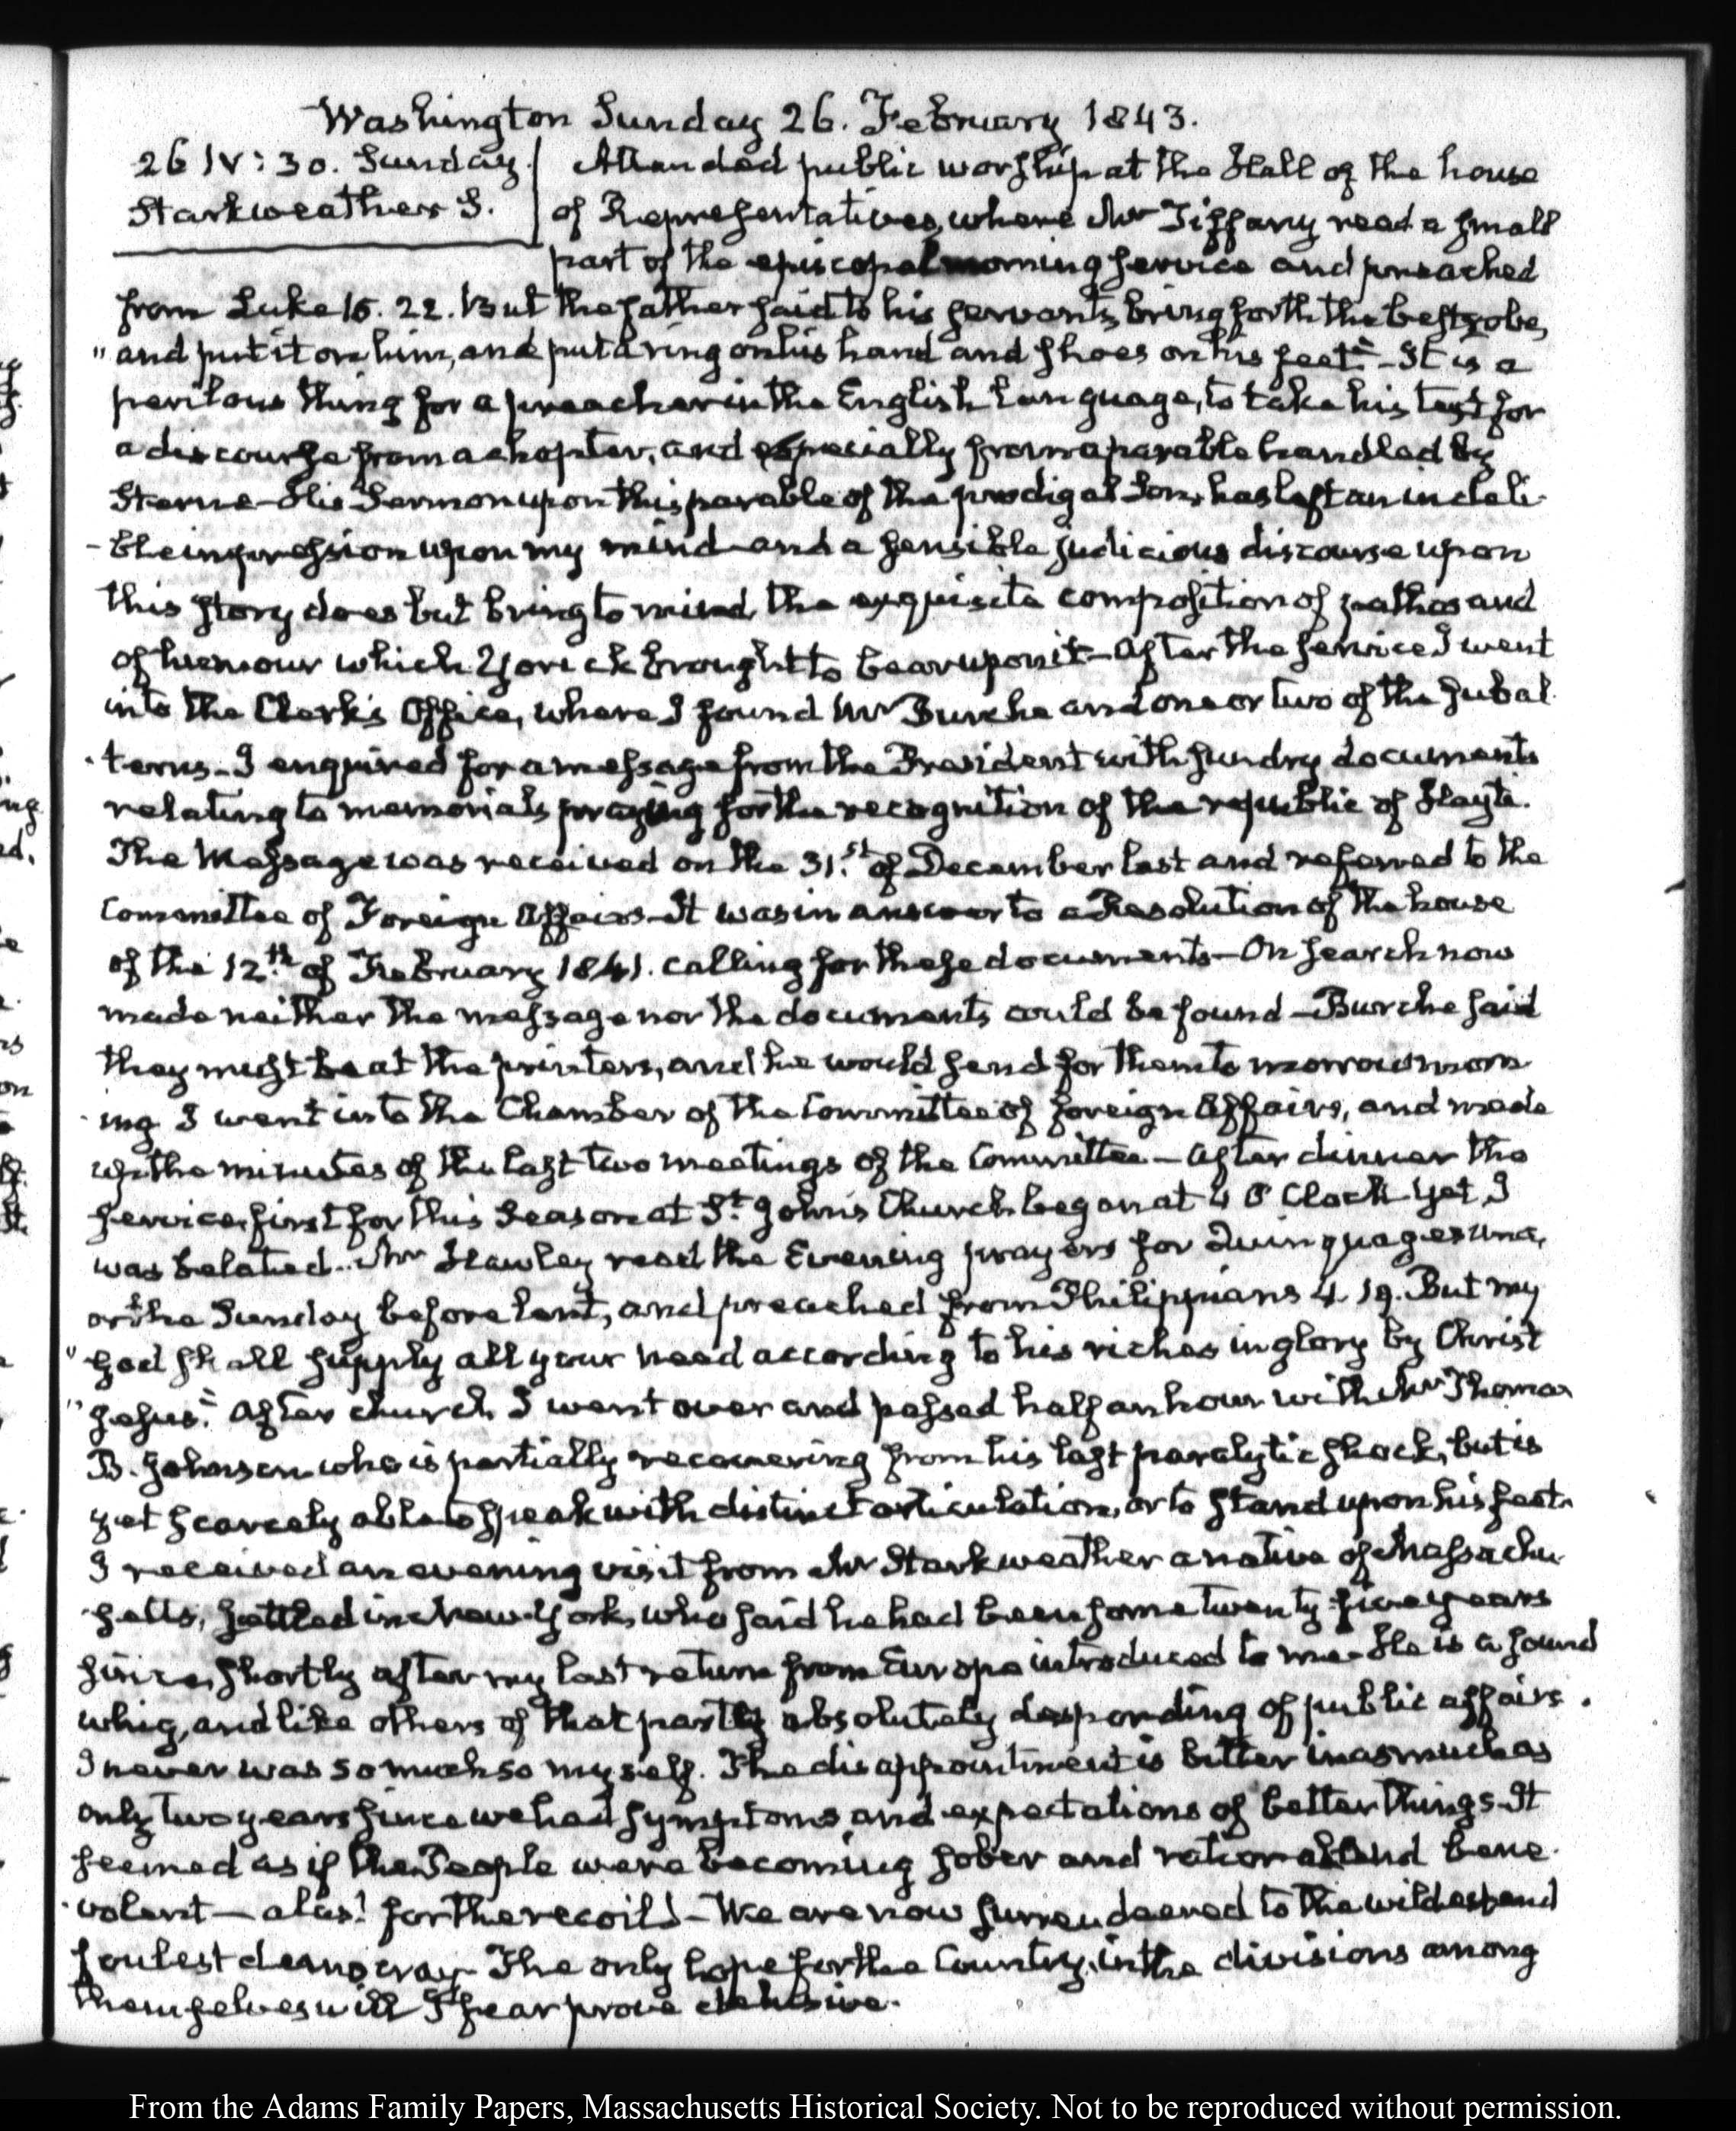 Washington Sunday 26. February 1843.
26 IV: 30. Sunday.
Starkweather S.
Attended public worship at the Hall of the house
of Representatives, where Mr Tiffany read a small
part of the episcopal morning service and preached
from Luke 15. 22. But the father said to his servants, bring forth the best robe,
"and put it on him, and put a ring on his hand and shoes on his feet." - It is a
perilous thing for a preacher in the English language, to take his text for
a discourse from a chapter, and especially from a parable handled by
Sterne - His Sermon upon this parable of the prodigal Son, has left an indeli-
-ble impression upon my mind and a sensible judicious discourse upon
this story does but bring to mind the exquisite composition of pathos and
of humour which Yorick brought to bear upon it - After the service I went
into the Clerk's Office, where I found Mr Burche and one or two of the subal-
-terns - I enquired for a message from the President with sundry documents
relating to memorials praying for the recognition of the republic of Hayti.
The Message was received on the 31.st of December last and referred to the
Committee of Foreign Affairs - It was in answer to a Resolution of the house
of the 12.th of February 1841. calling for these documents - On search now
made neither the message nor the documents could be found - Burche said
they might be at the printers, and he would send for them to morrow morn
-ing I went into the Chamber of the Committee of foreign Affairs, and made
up the minutes of the last two meetings of the Committee - After dinner the
service, first for this Season at St. John's Church began at 4 O'Clock yet I
was belated. Mr Hawley read the Evening prayers for Quinquagesima,
or the Sunday before lent, and preached from Philippians 4. 19. But my
"God shall supply all your need according to his riches in glory by Christ
"Jesus." After church I went over and passed half an hour with Mr Thomas
B. Johnson who is partially recovering from his last paralytic shock, but is
yet scarcely able to speak with distinct articulation, or to stand upon his feet.
I received an evening visit from Mr Starkweather a native of Massachu-
-setts, settled in New-York, who said he had been some twenty-five years
since, shortly after my last return from Europe introduced to me - He is a sound
whig, and like others of that party absolutely desponding of public affairs.
I never was so much so myself. The disappointment is bitter inasmuch as
only two years since we had symptoms and expectations of better things - It
seemed as if the People were becoming sober and rational and bene-
-volent - alas! for the recoil! - We are now surrendered to the wildest and
foulest democracy - The only hope for the Country, in the divisions among
themselves will I fear prove delusive.
From the Adams Family Papers, Massachusetts Historical Society. Not to be reproduced without permission.